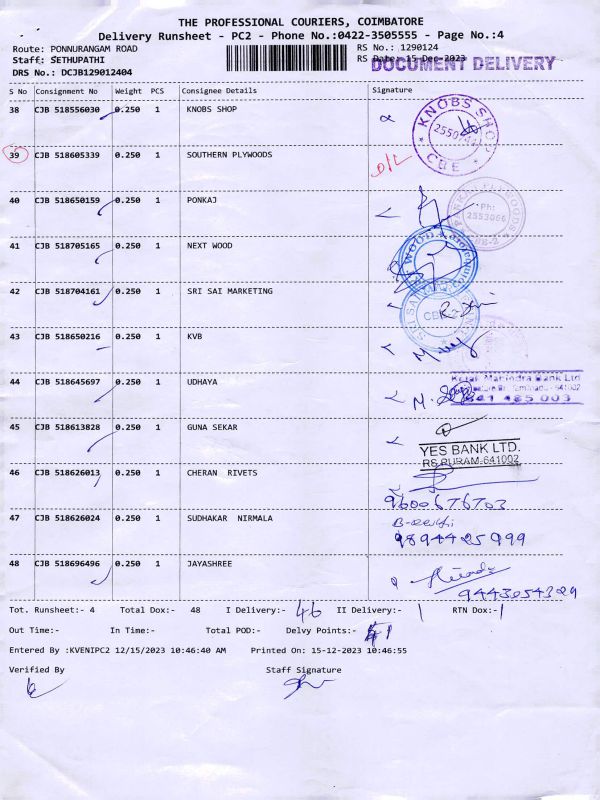 THE PROFESSIONAL COURIERS, COIMBATORE
Delivery Runsheet - PC2 - Phone No.:0422-3505555 - Page No.:4
Route: PONNURANGAM ROAD
RS No.: 1290124
Staff: SETHUPATHI
RS Date: 15-Dec-2023
DOCUMENT DELIVERY
DRS No.: DCJB129012404
S No Consignment No Weight PCS Consignee Details Signature
38 CJB 518556030 0.250 1 KNOBS SHOP
KNOBS SHOP
CBE
39 CJB 518605339 0.250 1 SOUTHERN PLYWOODS
D/L
40 CJB 518650159 0.250 1 PONKAJ
Ph:
2553066
41 CJB 518705165 0.250 1 NEXT WOOD
42 CJB 518704161 0.250 1 SRI SAI MARKETING
43 CJB 518650216 0.250 1 KVB
44 CJB 518645697 0.250 1 UDHAYA
Kotak Mahindra Bank Ltd
45 CJB 518613828 0.250 1 GUNA SEKAR
YES BANK LTD.
RS PURAM-641002
46 CJB 518626013 0.250 1 CHERAN RIVETS
9600676703
47 CJB 518626024 0.250 1 SUDHAKAR NIRMALA
9894425999
48 CJB 518696496 0.250 1 JAYASHREE
9443054329
Tot. Runsheet:- 4 Total Dox:- 48 I Delivery:- 46 II Delivery:- 1 RTN Dox:- 1
Out Time:- In Time:- Total POD:- Delvy Points:-
Entered By :KVENIPC2 12/15/2023 10:46:40 AM Printed On: 15-12-2023 10:46:55
Verified By Staff Signature